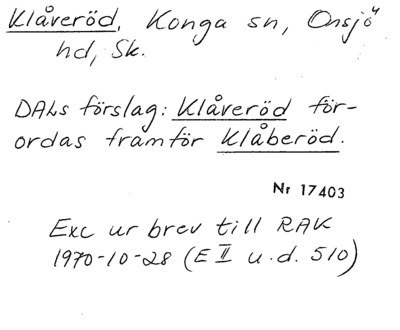 Klåveröd, Konga sn, Onsjö
hd, Sk.
DALs förslag: Klåveröd för-
ordas framför Klåberöd.
Nr 17403
Exc ur brev till RAK
1970-10-28 (E II u.d. 510)